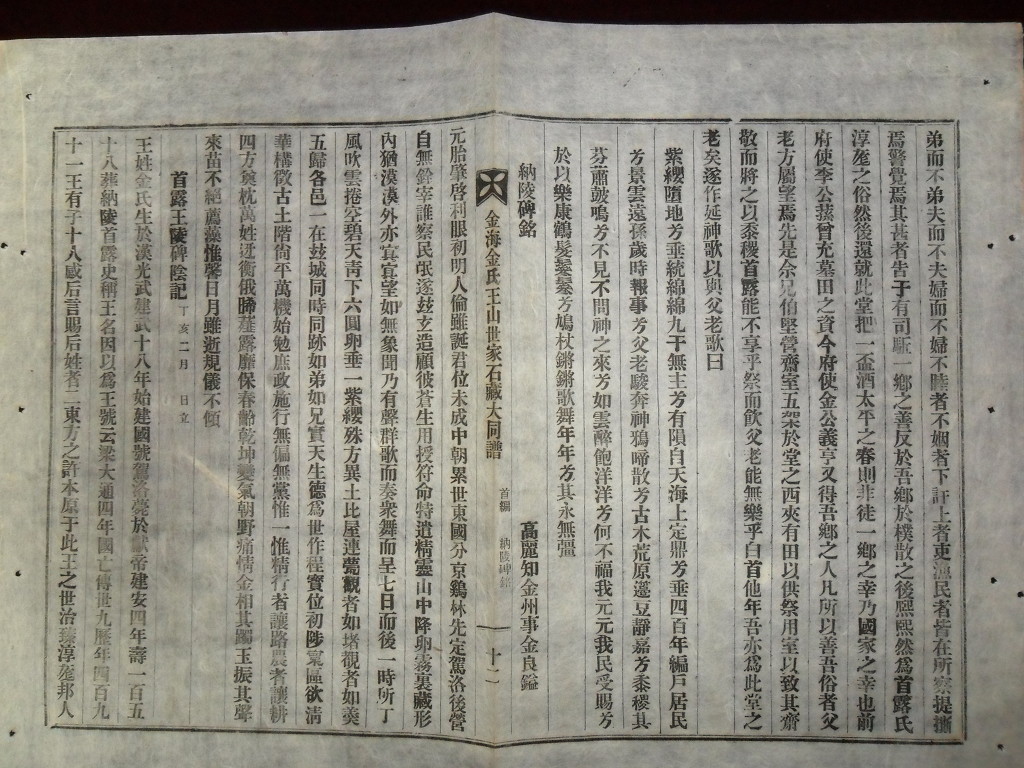 弟而不弟夫而不夫婦而不婦不睦者不姻者下訐上者吏漁民者皆在所察提撕
焉警覺焉其甚者告于有司黜一鄉之善反於吾鄉於樸散之後熙熙然爲首露氏
淳厖之俗然後還就此堂把一盃酒太平之春則非徒一鄉之幸乃國家之幸也前
府使李公蓂曾充墓田之資今府使金公義亨又得吾鄉之人凡所以善吾俗者父
老方屬望焉先是余兄伯堅營齋室五架於堂之西夾有田以供祭用室以致其齋
敬而將之以黍稷首露能不享乎祭而飮父老能無樂乎白首他年吾亦爲此堂之
老矣遂作延神歌以與父老歌曰
紫纓墮地兮垂統綿綿九干無主兮有隕自天海上定鼎兮垂四百年編戶居民
兮景雲遠孫歲時報事兮父老駿奔神鴉啼散兮古木荒原籩豆靜嘉兮黍稷其
芬簫鼓鳴兮不見不問神之來兮如雲醉飽洋洋兮何不福我元元我民受賜兮
於以樂康鶴髮鬖鬖兮鳩杖鏘鏘歌舞年年兮其永無疆
納陵碑銘 高麗知金州事金良鎰
金海金氏王山世家石藏大同譜 首編 納陵碑銘 十二
元胎肇啓利眼初明人倫雖誕君位未成中朝累世東國分京鷄林先定駕洛後營
自無銓宰誰察民氓遂玆玄造顧彼蒼生用授符命特遣精靈山中降卵霧裏藏形
內猶漠漠外亦冥冥望如無象聞乃有聲群歌而奏衆舞而呈七日而後一時所丁
風吹雲捲空碧天靑下六圓卵垂一紫纓殊方異土比屋連甍觀者如堵觀者如羹
五歸各邑一在玆城同時同跡如弟如兄實天生德爲世作程寶位初陟寰區欲淸
華構徵古土階尙平萬機始勉庶政施行無偏無黨惟一惟精行者讓路農者讓耕
四方奠枕萬姓迓衡俄睎薤露靡保春齡乾坤變氣朝野痛情金相其躅玉振其聲
來苗不絕薦藻惟馨日月雖逝規儀不傾
首露王陵碑陰記 丁亥二月 日立
王姓金氏生於漢光武建武十八年始建國號駕洛薨於獻帝建安四年壽一百五
十八葬納陵首露史稱王名因以爲王號云梁大通四年國亡傳世九歷年四百九
十一王有子十八感后言賜后姓者二東方之許本原于此王之世治臻淳厖邦人